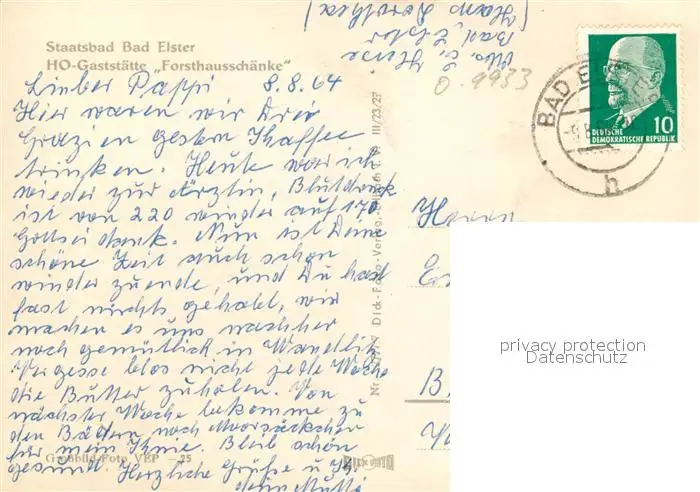 Staatsbad Bad Elster
HO-Gaststätte „Forsthausschänke"
Lieber Pappi 8.8.64
Hier waren wir Drei
Grazien gestern Kaffee
trinken. Heute war ich
wieder zur Ärztin, Blutdruck
ist von 220 wieder auf 170
Gottseidank. Nun ist Deine
schöne Zeit auch schon
wieder zuende, und Du hast
fast nichts gehabt, wir
machen es uns nachher
noch gemütlich in Wandlitz
Vergesse blos nicht jede Woche
die Butter zuholen. Von
nächster Woche bekomme zu
den Bädern noch Moorsäckchen
für mein Knie. Bleib schön
gesund. Herzliche Grüße u. Kß.
deine Mutti
Großbild-Foto VEP – 25
Bad Elster
Haus Dorothea
0.9933
III/23/27
Dick-Foto-Verlag,
Nr.
BAD ELSTER
h
10
DEUTSCHE
DEMOKRATISCHE REPUBLIK
Herrn
B
privacy protection
Datenschutz